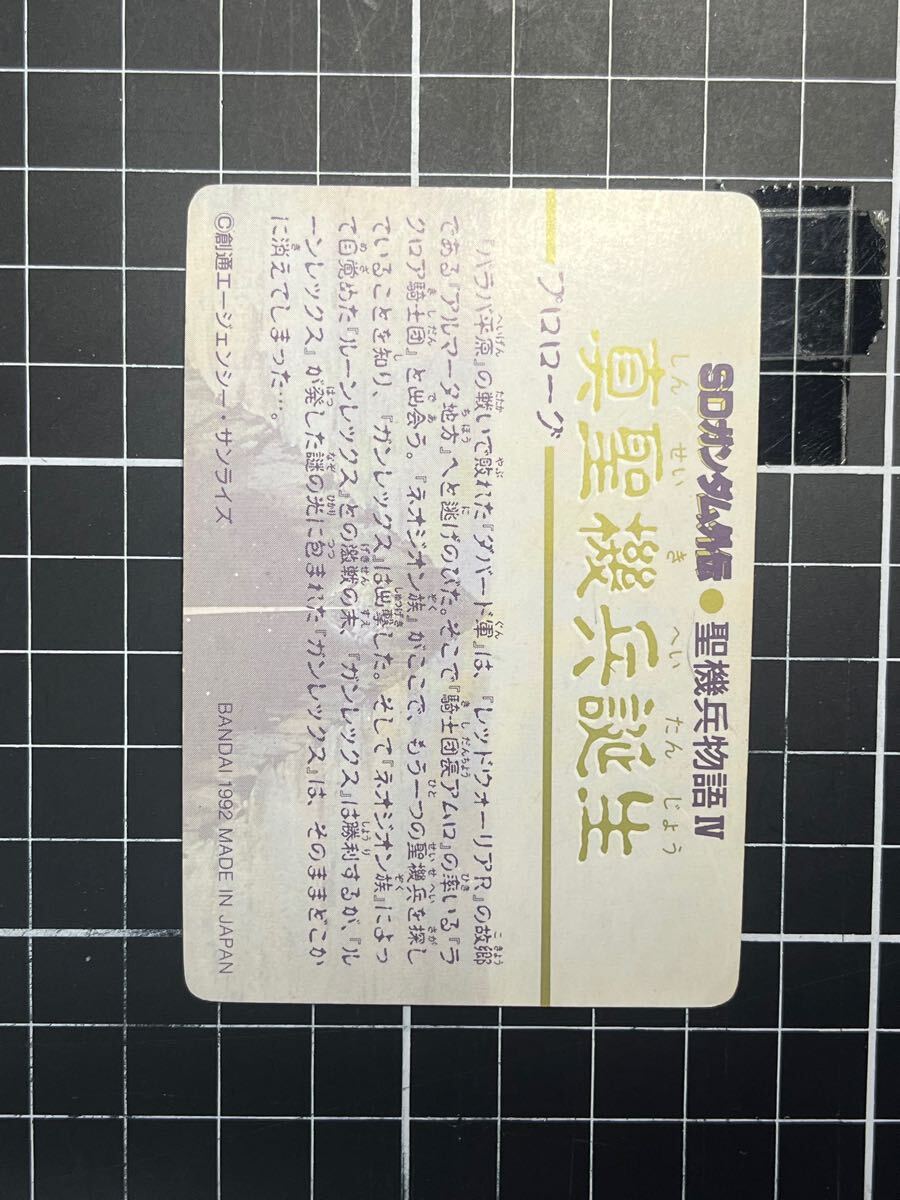 SDガンダム外伝●聖機兵物語Ⅳ
真聖機兵誕生
しんせいきへいたんじょう
プロローグ
『バラバ平原』の戦いで敗れた『ダバード軍』は、『レッドウォーリアR』の故郷
である『アルマータ地方』へと逃げのびた。そこで『騎士団長アムロ』の率いる『ラ
クロア騎士団』と出会う。『ネオジオン族』がここで、もう一つの聖機兵を探し
ていることを知り、『ガンレックス』は出撃した。そして『ネオジオン族』によっ
て目覚めた『ルーンレックス』との激戦の末、『ガンレックス』は勝利するが、『ル
ーンレックス』が発した謎の光に包まれた『ガンレックス』は、そのままどこか
に消えてしまった…。
©創通エージェンシー・サンライズ
BANDAI 1992 MADE IN JAPAN